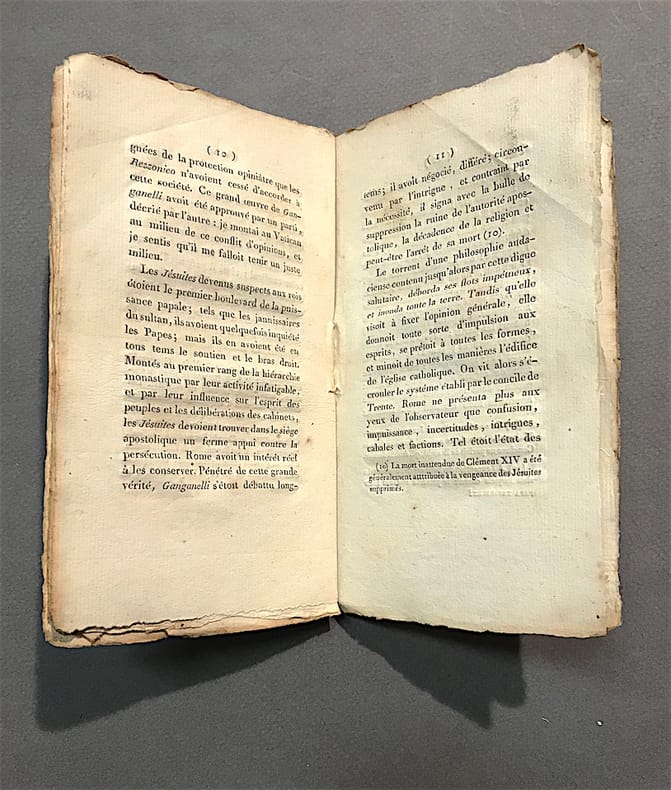 ( 10 )
gnées de la protection opiniâtre que les
Rezzonico n'avoient cessé d'accorder à
cette société. Ce grand œuvre de Gan-
ganelli avoit été approuvé par un parti,
décrié par l'autre : je montai au Vatican
au milieu de ce conflit d'opinions, et
je sentis qu'il me falloit tenir un juste
milieu.
Les Jésuites devenus suspects aux rois
étoient le premier boulevard de la puis-
sance papale; tels que les jannissaires
du sultan, ils avoient quelquefois inquiété
les Papes; mais ils en avoient été en
tous tems le soutien et le bras droit.
Montés au premier rang de la hiérarchie
monastique par leur activité infatigable,
et par leur influence sur l'esprit des
peuples et les délibérations des cabinets,
les Jésuites devoient trouver dans le siège
apostolique un ferme appui contre la
persécution. Rome avoit un intérêt réel
à les conserver. Pénétré de cette grande
vérité, Ganganelli s'étoit débattu long-
( 11 )
tems; il avoit négocié, différé; circon-
venu par l'intrigue, et contraint par
la nécessité, il signa avec la bulle de
suppression la ruine de l'autorité apos-
tolique, la décadence de la religion et
peut-être l'arrêt de sa mort (10).
Le torrent d'une philosophie auda-
cieuse contenu jusqu'alors par cette digue
salutaire, déborda ses flots impétueux,
et inonda toute la terre. Tandis qu'elle
visoit à fixer l'opinion générale, elle
donnoit toute sorte d'impulsion aux
esprits, se prêtoit à toutes les formes,
et minoit de toutes les manières l'édifice
de l'église catholique. On vit alors s'é-
crouler le système établi par le concile de
Trente. Rome ne présenta plus aux
yeux de l'observateur que confusion,
impuissance, incertitudes, intrigues,
cabales et factions. Tel étoit l'état des
(10) La mort inattendue de Clément XIV a été
généralement attribuée à la vengeance des Jésuites
supprimés.